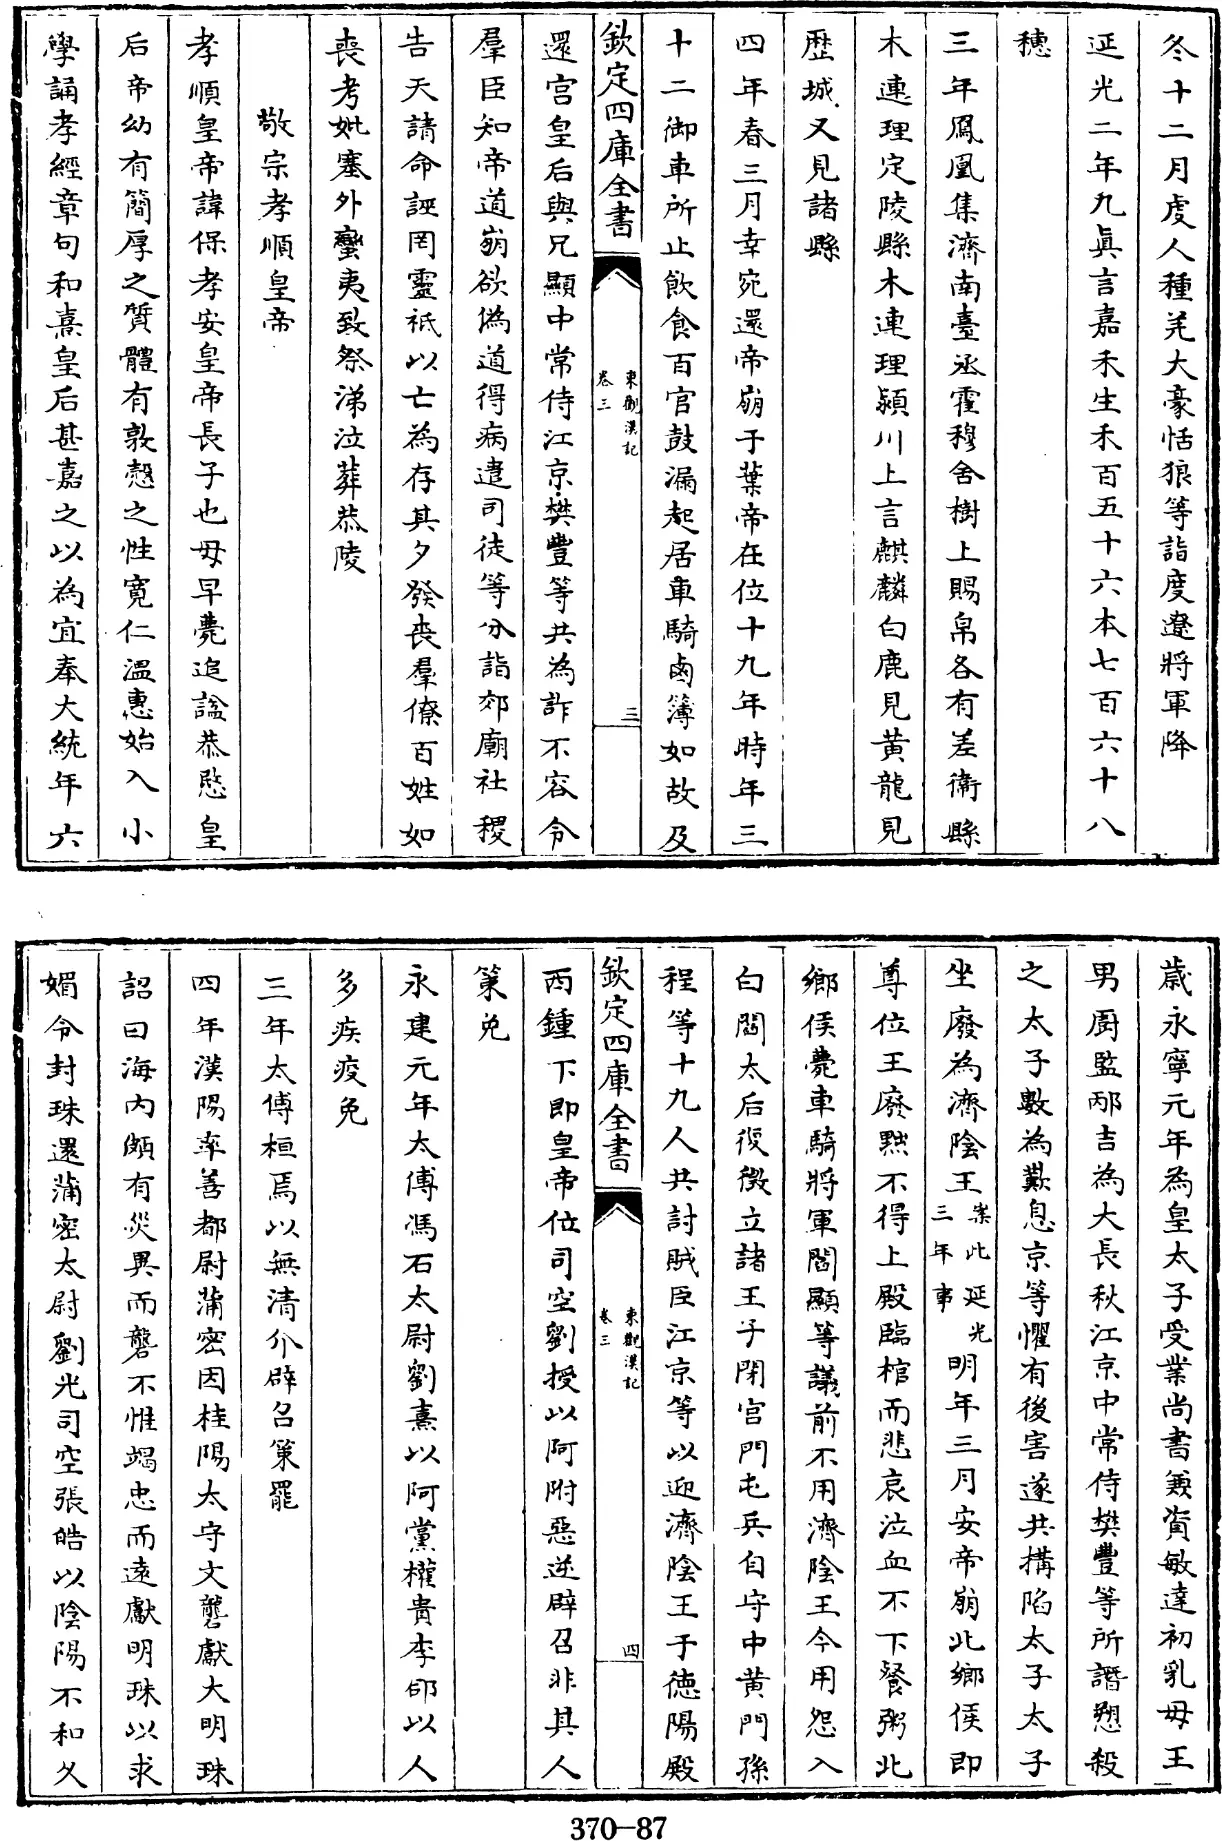 冬十二月虔人種羌大豪恬狼等詣度遼將軍降
延光二年九眞言嘉禾生禾百五十六本七百六十八
穗
三年鳳凰集濟南臺丞霍穆舍樹上賜帛各有差衛縣
木連理定陵縣木連理潁川上言麒麟白鹿見黃龍見
歷城又見諸縣
四年春三月幸宛還帝崩于葉帝在位十九年時年三
十二御車所止飲食百官鼓漏起居車騎鹵簿如故及
欽定四庫全書
東觀漢記
卷三
三
還宮皇后與兄顯中常侍江京樊豐等共為詐不容令
羣臣知帝道崩欲偽道得病遣司徒等分詣郊廟社稷
告天請命誣罔靈祗以亡為存其夕發喪羣僚百姓如
喪考妣塞外蠻夷致祭涕泣葬恭陵
敬宗孝順皇帝
孝順皇帝諱保孝安皇帝長子也母早薨追諡恭愍皇
后帝幼有簡厚之質體有敦慤之性寛仁溫惠始入小
學誦孝經章句和熹皇后甚嘉之以為宜奉大統年六
歲永寧元年為皇太子受業尚書兼資敏達初乳母王
男厨監邴吉為大長秋江京中常侍樊豐等所譖愬殺
之太子數為歎息京等懼有後害遂共搆陷太子太子
坐廢為濟陰王案此延光三年事明年三月安帝崩北鄉侯即
尊位王廢黜不得上殿臨棺而悲哀泣血不下餐粥北
鄉侯薨車騎將軍閻顯等議前不用濟陰王今用怨入
白閻太后復徵立諸王子閉宮門屯兵自守中黄門孫
程等十九人共討賊臣江京等以迎濟陰王于德陽殿
欽定四庫全書
東觀漢記
卷三
四
西鍾下即皇帝位司空劉授以阿附惡逆辟召非其人
策免
永建元年太傅馮石太尉劉熹以阿黨權貴李郃以人
多疾疫免
三年太傅桓焉以無清介辟召策罷
四年漢陽率善都尉蒲密因桂陽太守文礱獻大明珠
詔曰海内頗有災異而礱不惟竭忠而遠獻明珠以求
媚令封珠還蒲密太尉劉光司空張皓以陰陽不和久
370-87